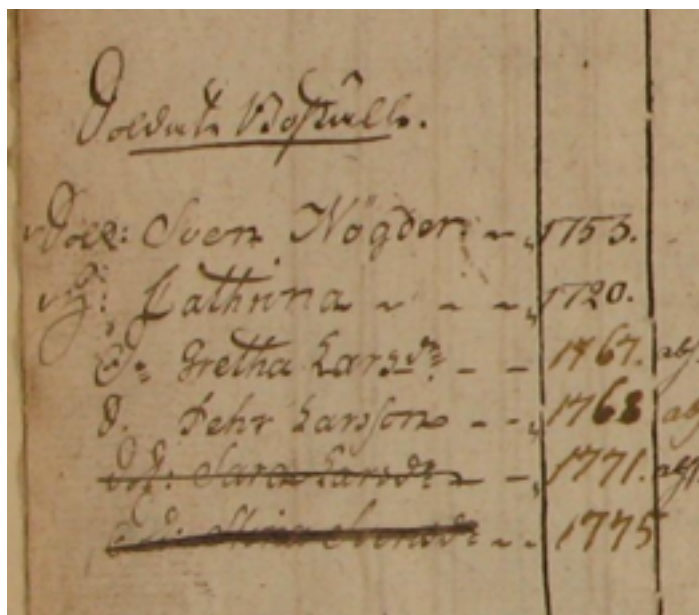 Soldate Boställe.
Sold: Sven Nögder 1753.
H: Cathrina 1720.
D: Gretha Larsdr 1767. abs
d. Pehr Larsson 1768 abs
Sara Larsdr 1771. abs.
Stina Svensdr 1775